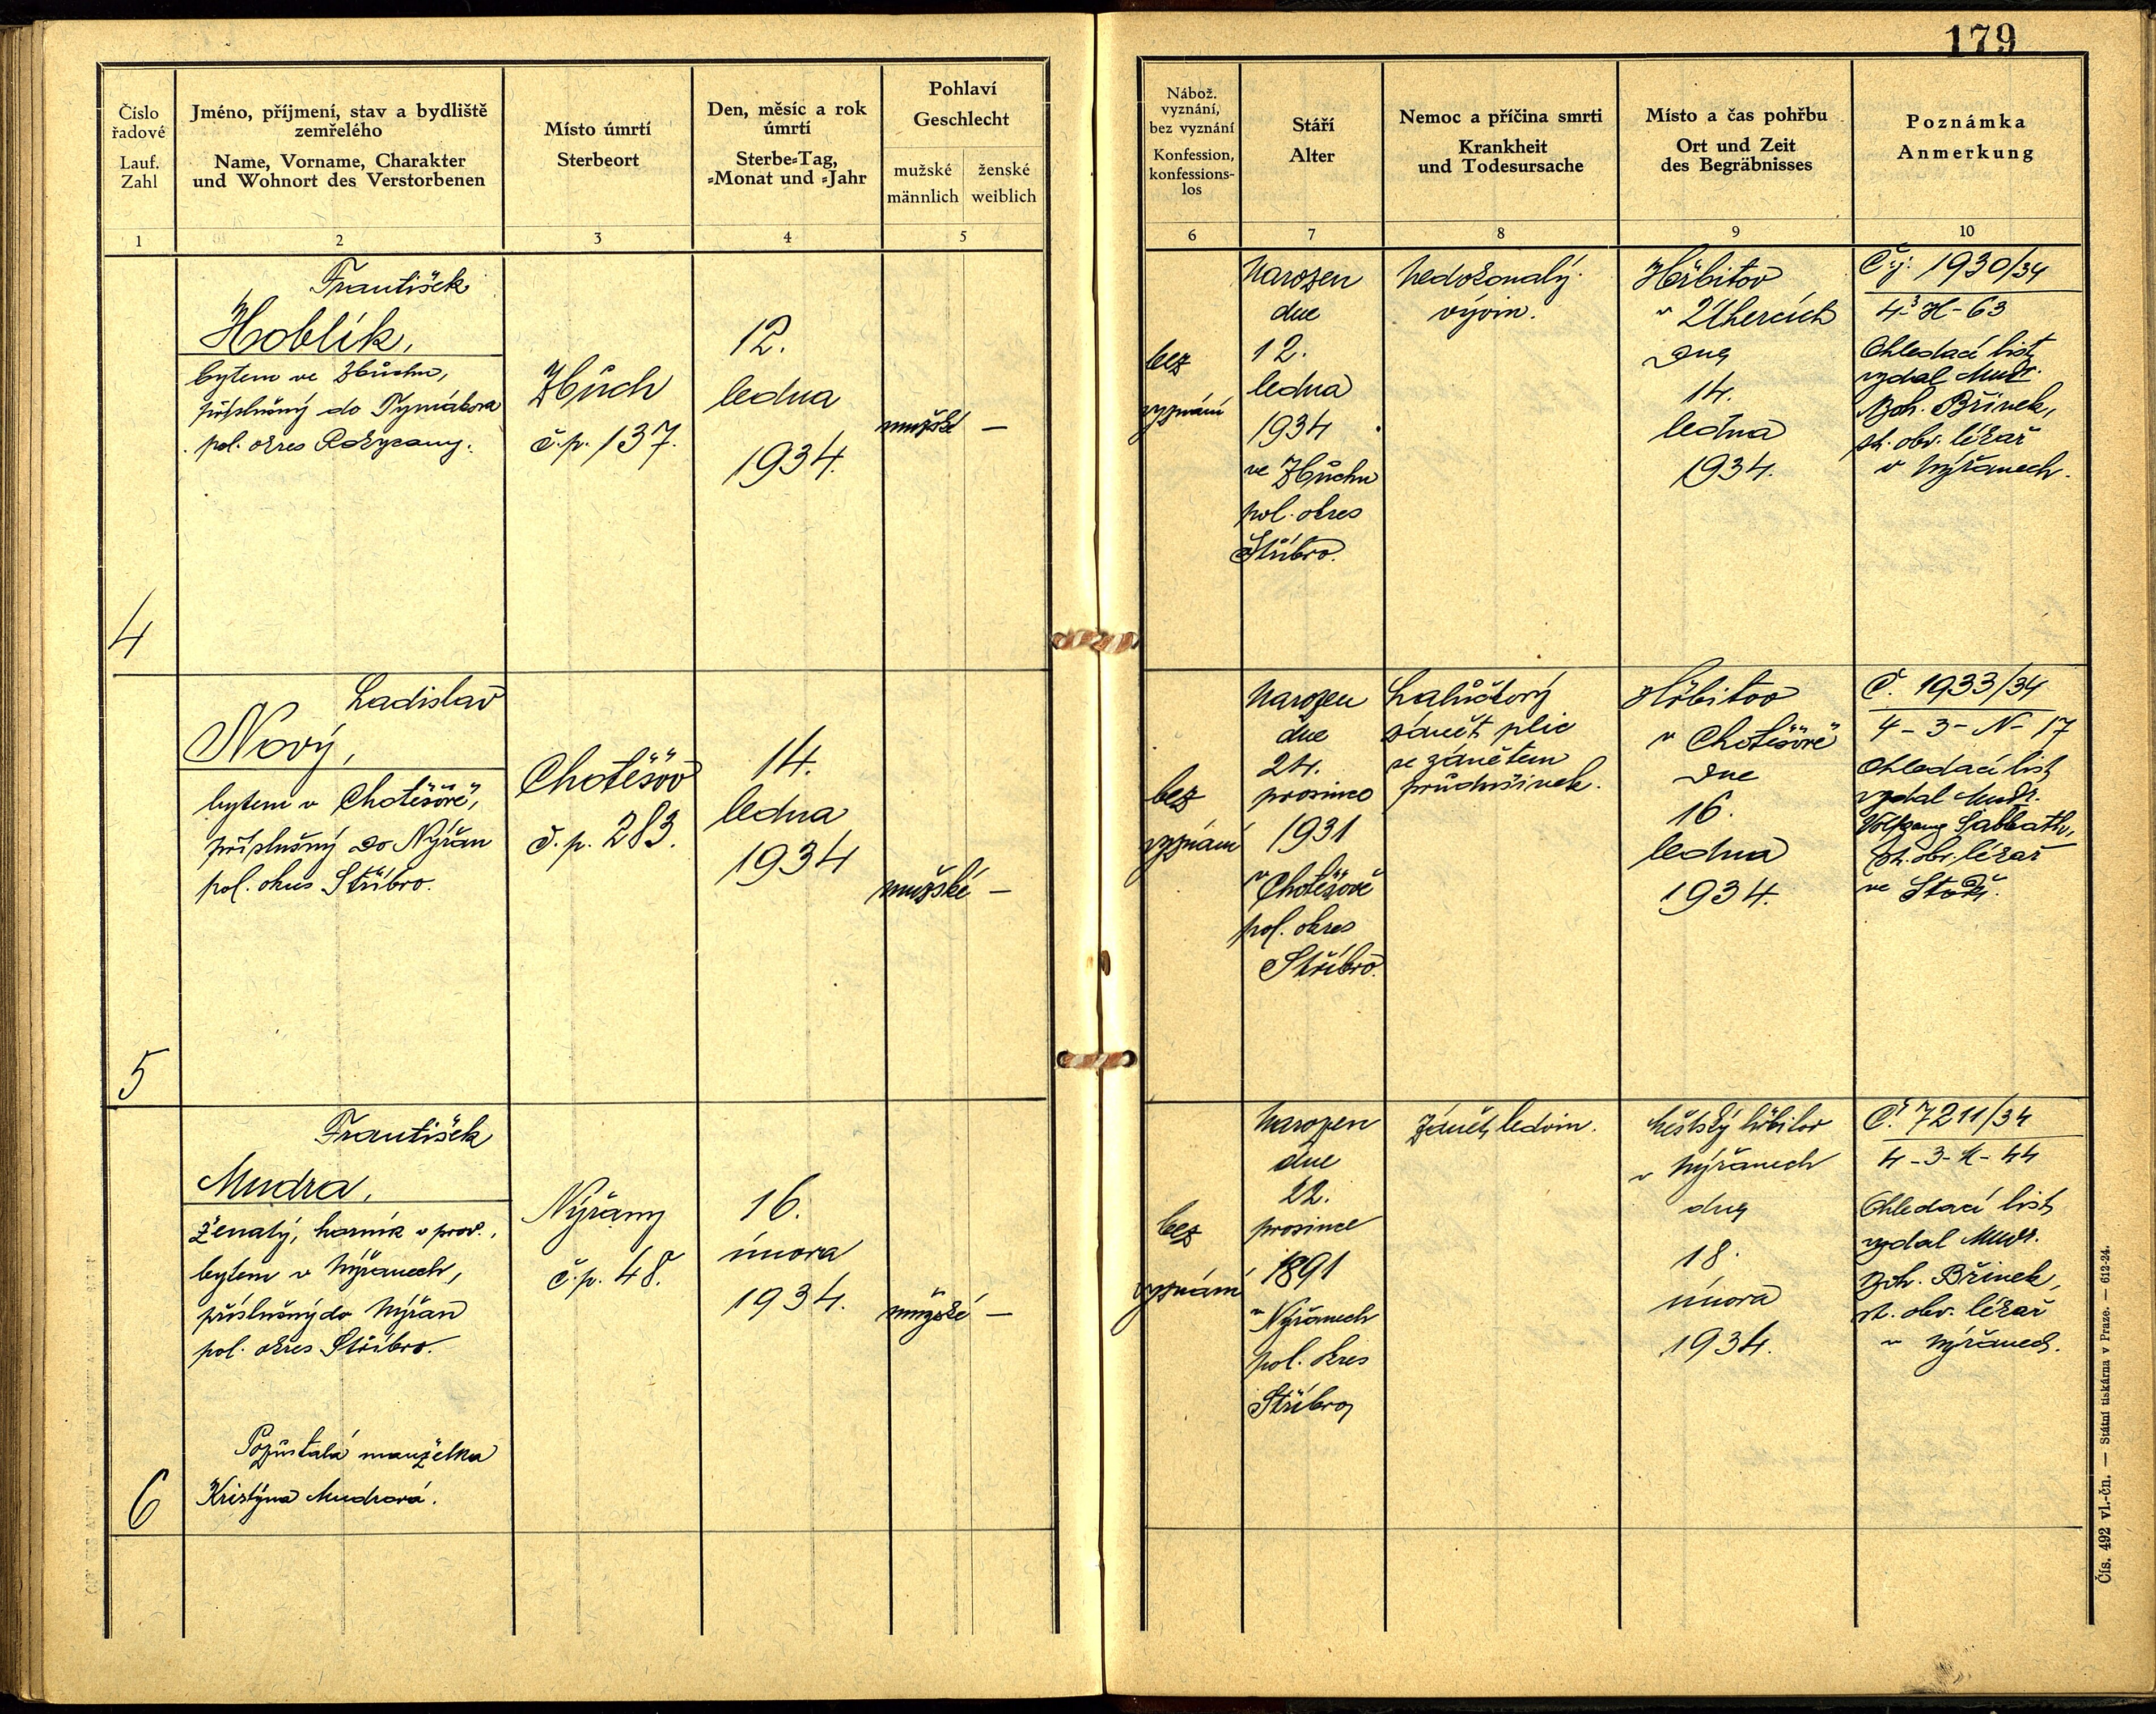 179
Číslo
řadové
Lauf.
Zahl
Jméno, příjmení, stav a bydliště
zemřelého
Name, Vorname, Charakter
und Wohnort des Verstorbenen
Místo úmrtí
Sterbeort
Den, měsíc a rok
úmrtí
Sterbe-Tag,
-Monat und -Jahr
Pohlaví
Geschlecht
mužské
männlich
ženské
weiblich
Nábož.
vyznání,
bez vyznání
Konfession,
konfessions-
los
Stáří
Alter
Nemoc a příčina smrti
Krankheit
und Todesursache
Místo a čas pohřbu
Ort und Zeit
des Begräbnisses
Poznámka
Anmerkung
1
2
3
4
5
6
7
8
9
10
4
František
Hoblík,
bytem ve Zbůchu,
příslušný do Tymákova
pol. okres Rokycany.
Zbůch
č.p. 137.
12.
ledna
1934.
mužské —
bez
vyznání
Narozen
dne
12.
ledna
1934
ve Zbůchu
pol. okres
Stříbro.
Nedokonalý
vývin.
Hřbitov
v Uhercích
dne
14.
ledna
1934.
Č.j. 1930/34
4-3 H-63
Ohledací list
vydal Mudr.
Boh. Břinek,
st. obv. lékař
v Nýřanech.
5
Ladislav
Nový,
bytem v Chotěšově,
příslušný do Nýřan
pol. okres Stříbro.
Chotěšov
č.p. 283.
14.
ledna
1934
mužské —
bez
vyznání
Narozen
dne
24.
prosince
1931
v
Chotěšově
pol. okres
Stříbro.
Lalůčkový
zánět plic
se zánětem
průdušinek.
Hřbitov
v Chotěšově
dne
16.
ledna
1934.
Č. 1933/34
4-3-N-17
Ohledací list
vydal Mudr.
Wolfgang Sabbath,
st. obv. lékař
ve Stodě.
6
František
Mudra,
ženatý, horník v prov.,
bytem v Nýřanech,
příslušný do Nýřan
pol. okres Stříbro.
Pozůstalá manželka
Kristýna Mudrová.
Nýřany
č.p. 48.
16.
února
1934.
mužské —
bez
vyznání
Narozen
dne
22.
prosince
1891
v Nýřanech
pol. okres
Stříbro,
Zánět ledvin.
Městský hřbitov
v Nýřanech
dne
18.
února
1934.
Č. 7211/34
4-3-M-44
Ohledací list
vydal Mudr.
Boh. Břinek,
st. obv. lékař
v Nýřanech.
Čís. 492 vl.-čn. — Státní tiskárna v Praze. — 612-24.